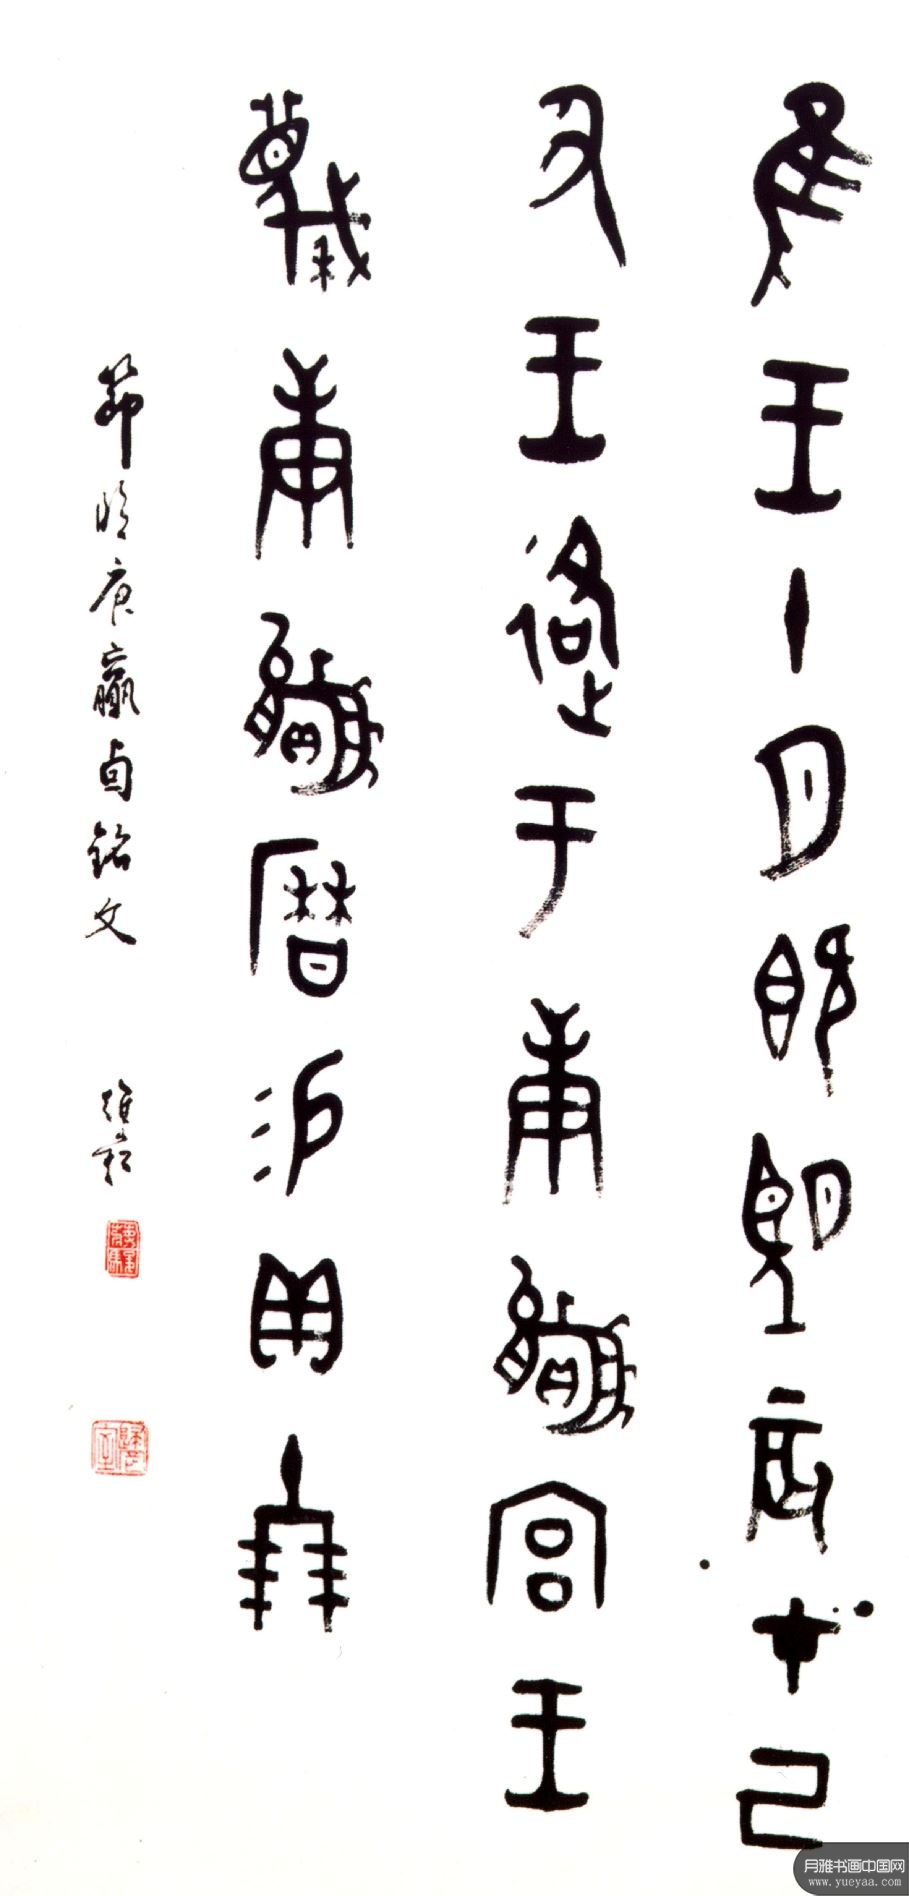 隹王十月既望辰才己
丑王各于庚嬴宮王
蔑庚嬴曆易貝十朋
節臨庚嬴卣銘文
月雅书画中国网
www.yueyaa.com